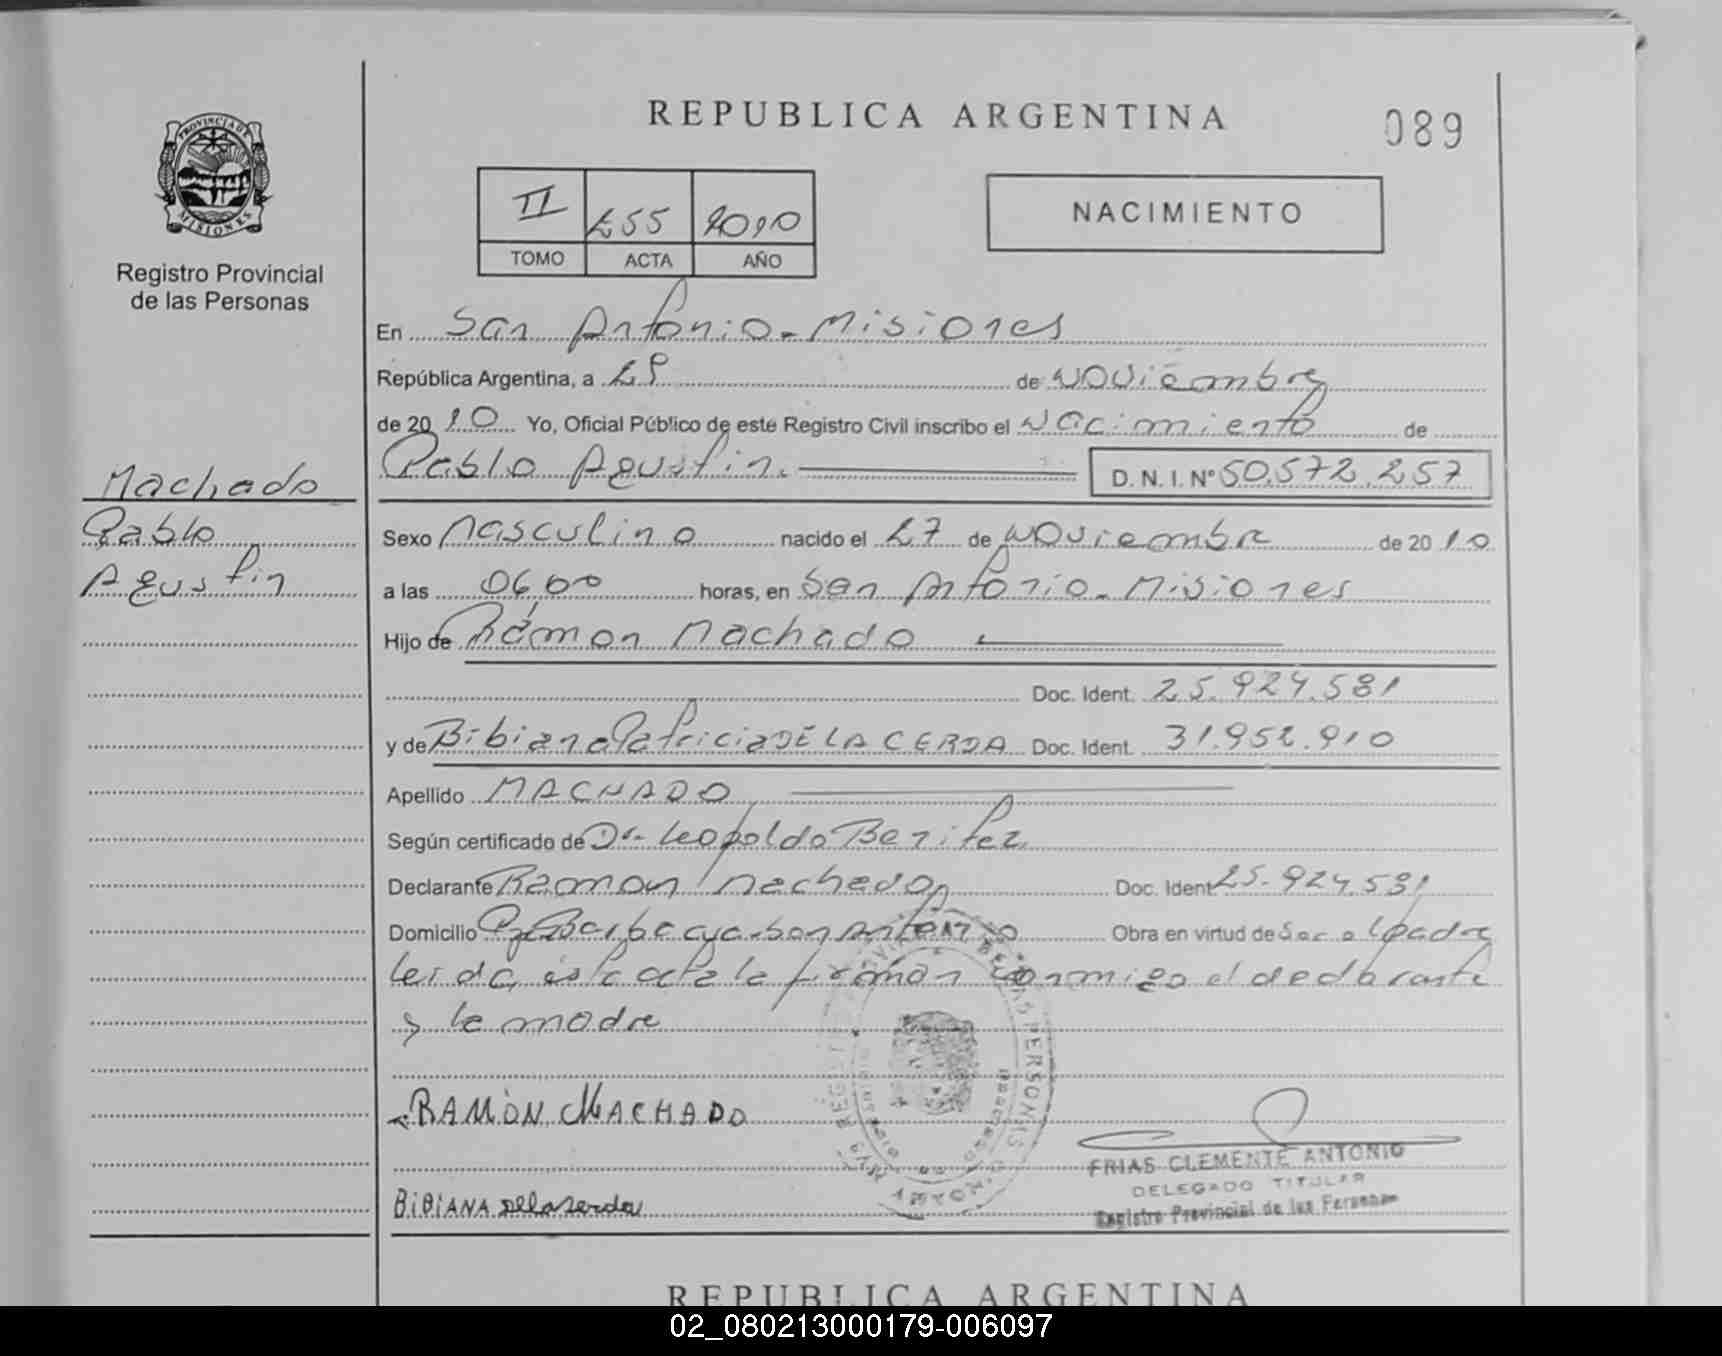 REPUBLICA ARGENTINA
089
PROVINCIA DE
MISIONES
Registro Provincial
de las Personas
II 255 2010
TOMO ACTA AÑO
NACIMIENTO
En San Antonio - Misiones
República Argentina, a 29 de Noviembre
de 2010 Yo, Oficial Público de este Registro Civil inscribo el Nacimiento de
Pablo Agustin. D. N. I. Nº 50.572.257
Machado
Pablo
Agustin
Sexo Masculino nacido el 27 de Noviembre de 2010
a las 06,00 horas, en San Antonio - Misiones
Hijo de Ramon Machado
Doc. Ident. 25.924.581
y de Bibiana Patricia DE LA CERDA Doc. Ident. 31.952.910
Apellido MACHADO
Según certificado de Dr. Leopoldo Benitez
Declarante Ramon Machado Doc. Ident 25.924.581
Domicilio San Antonio Obra en virtud de Ser el padre
leida esta acta la firman conmigo el declarante
y la madre
RAMÓN MACHADO
FRIAS CLEMENTE ANTONIO
DELEGADO TITULAR
Registro Provincial de las Personas
BIBIANA Delaserda
REPUBLICA ARGENTINA
02_080213000179-006097